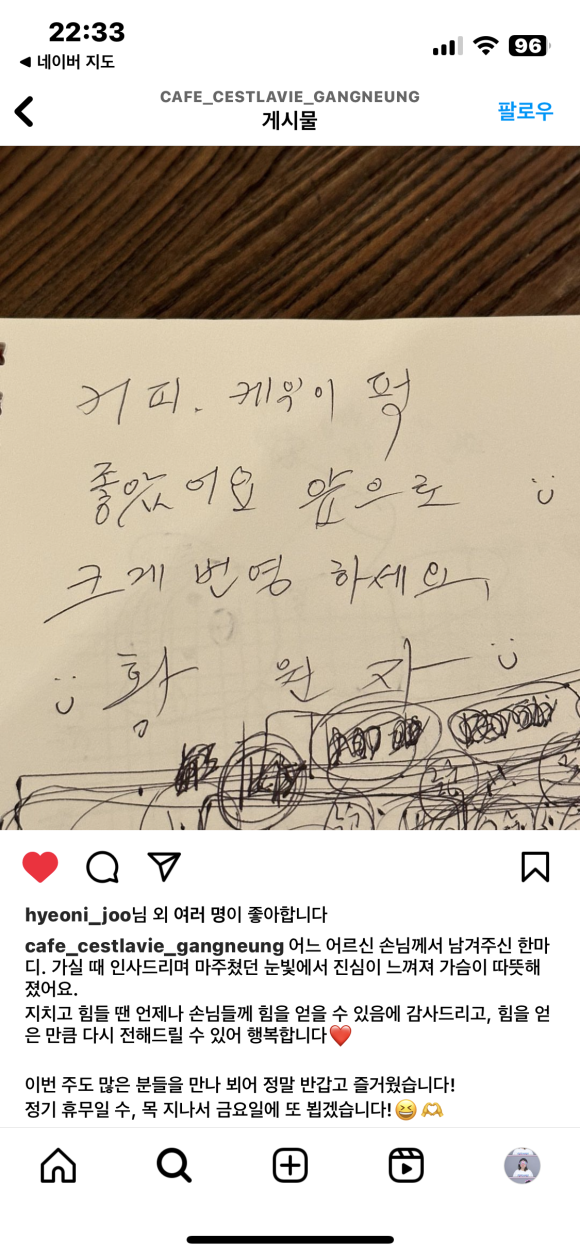 22:33
96
◀ 네이버 지도
CAFE_CESTLAVIE_GANGNEUNG
게시물
팔로우
커피. 케익이 퍽
좋았어요 앞으로
크게 번영 하세요
황 원 자
hyeoni_joo님 외 여러 명이 좋아합니다
cafe_cestlavie_gangneung 어느 어르신 손님께서 남겨주신 한마
디. 가실 때 인사드리며 마주쳤던 눈빛에서 진심이 느껴져 가슴이 따뜻해
졌어요.
지치고 힘들 땐 언제나 손님들께 힘을 얻을 수 있음에 감사드리고, 힘을 얻
은 만큼 다시 전해드릴 수 있어 행복합니다❤️
이번 주도 많은 분들을 만나 뵈어 정말 반갑고 즐거웠습니다!
정기 휴무일 수, 목 지나서 금요일에 또 뵙겠습니다!😆🫶